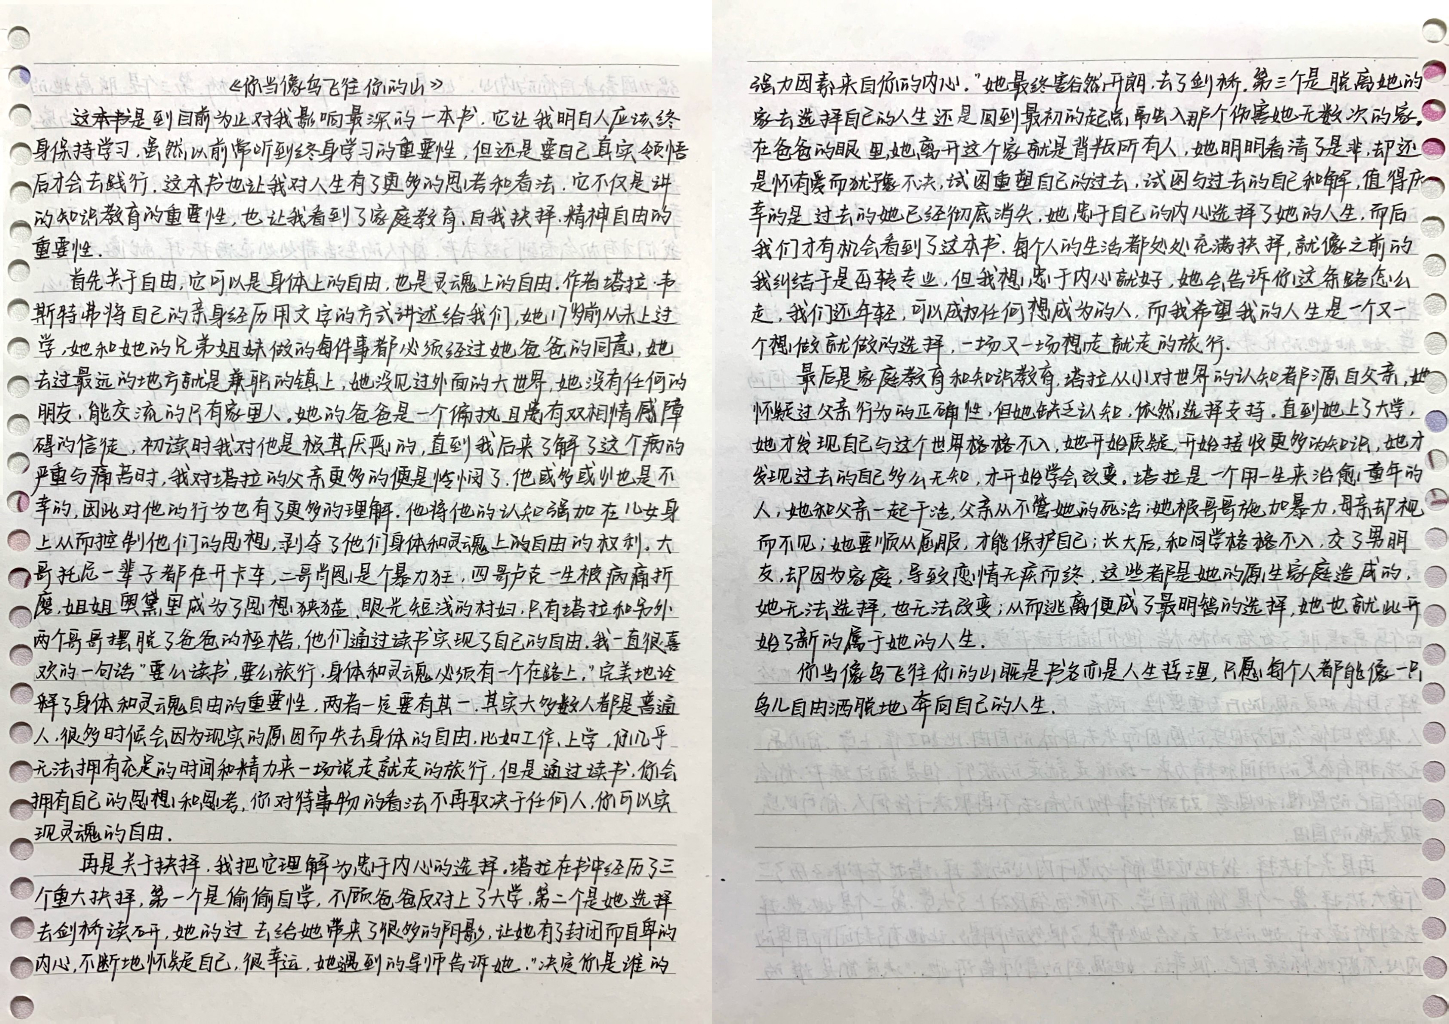 《你当像鸟飞往你的山》
这本书是到目前为止对我影响最深的一本书.它让我明白人应该终
身保持学习.虽然以前常听到终身学习的重要性,但还是要自己真实领悟
后才会去践行.这本书也让我对人生有了更多的思考和看法.它不仅是讲
的知识教育的重要性,也让我看到了家庭教育,自我抉择.精神自由的
重要性.
首先关于自由,它可以是身体上的自由,也是灵魂上的自由.作者塔拉·韦
斯特弗将自己的亲身经历用文字的方式讲述给我们,她17岁前从未上过
学,她和她的兄弟姐妹做的每件事都必须经过她爸爸的同意,她
去过最远的地方就是兼职的镇上,她没见过外面的大世界,她没有任何的
朋友,能交流的只有家里人.她的爸爸是一个偏执且患有双相情感障
碍的信徒,初读时我对他是极其厌恶的,直到我后来了解了这个病的
严重与痛苦时,我对塔拉的父亲更多的便是怜悯了,他或多或少也是不
幸的,因此对他的行为也有了更多的理解.他将他的认知强加在儿女身
上从而控制他们的思想,剥夺了他们身体和灵魂上的自由的权利.大
哥托尼一辈子都在开卡车,二哥肖恩是个暴力狂,四哥卢克一生被病痛折
磨,姐姐奥黛里成为了思想狭隘、眼光短浅的村妇.只有塔拉和另外
两个哥哥摆脱了爸爸的桎梏,他们通过读书实现了自己的自由.我一直很喜
欢的一句话"要么读书,要么旅行,身体和灵魂必须有一个在路上."完美地诠
释了身体和灵魂自由的重要性,两者一定要有其一.其实大多数人都是普通
人,很多时候会因为现实的原因而失去身体的自由,比如工作、上学,你几乎
无法拥有充足的时间和精力来一场说走就走的旅行,但是通过读书,你会
拥有自己的思想和思考,你对待事物的看法不再取决于任何人,你可以实
现灵魂的自由.
再是关于抉择,我把它理解为忠于内心的选择.塔拉在书中经历了三
个重大抉择,第一个是偷偷自学,不顾爸爸反对上了大学,第二个是她选择
去剑桥读研,她的过去给她带来了很多的阴影,让她有了封闭而自卑的
内心,不断地怀疑自己,很幸运,她遇到的导师告诉她."决定你是谁的
强力因素来自你的内心."她最终豁然开朗,去了剑桥.第三个是脱离她的
家去选择自己的人生还是回到最初的起点,带出入那个伤害她无数次的家.
在爸爸的眼里,她离开这个家就是背叛所有人,她明明看清了是非,却还
是怀有爱而犹豫不决,试图重塑自己的过去,试图与过去的自己和解,值得庆
幸的是过去的她已经彻底消失,她忠于自己的内心选择了她的人生,而后
我们才有机会看到了这本书.每个人的生活都处处充满抉择,就像之前的
我纠结于是否转专业,但我想,忠于内心就好,她会告诉你这条路怎么
走,我们还年轻,可以成为任何想成为的人,而我希望我的人生是一个又一
个想做就做的选择,一场又一场想走就走的旅行.
最后是家庭教育和知识教育,塔拉从小对世界的认知都源自父亲,她
怀疑过父亲行为的正确性,但她缺乏认知,依然选择支持.直到她上了大学,
她才发现自己与这个世界格格不入,她开始质疑,开始接收更多的知识,她才
发现过去的自己多么无知,才开始学会改变.塔拉是一个用一生来治愈童年的
人,她和父亲一起干活,父亲从不管她的死活;她被哥哥施加暴力,母亲却视
而不见;她要顺从屈服,才能保护自己;长大后,和同学格格不入,交了男朋
友,却因为家庭,导致恋情无疾而终,这些都是她的原生家庭造成的,
她无法选择,也无法改变;从而逃离便成了最明智的选择,她也就此开
始了新的属于她的人生.
你当像鸟飞往你的山既是书名亦是人生哲理,只愿每个人都能像一只
鸟儿自由洒脱地奔向自己的人生.